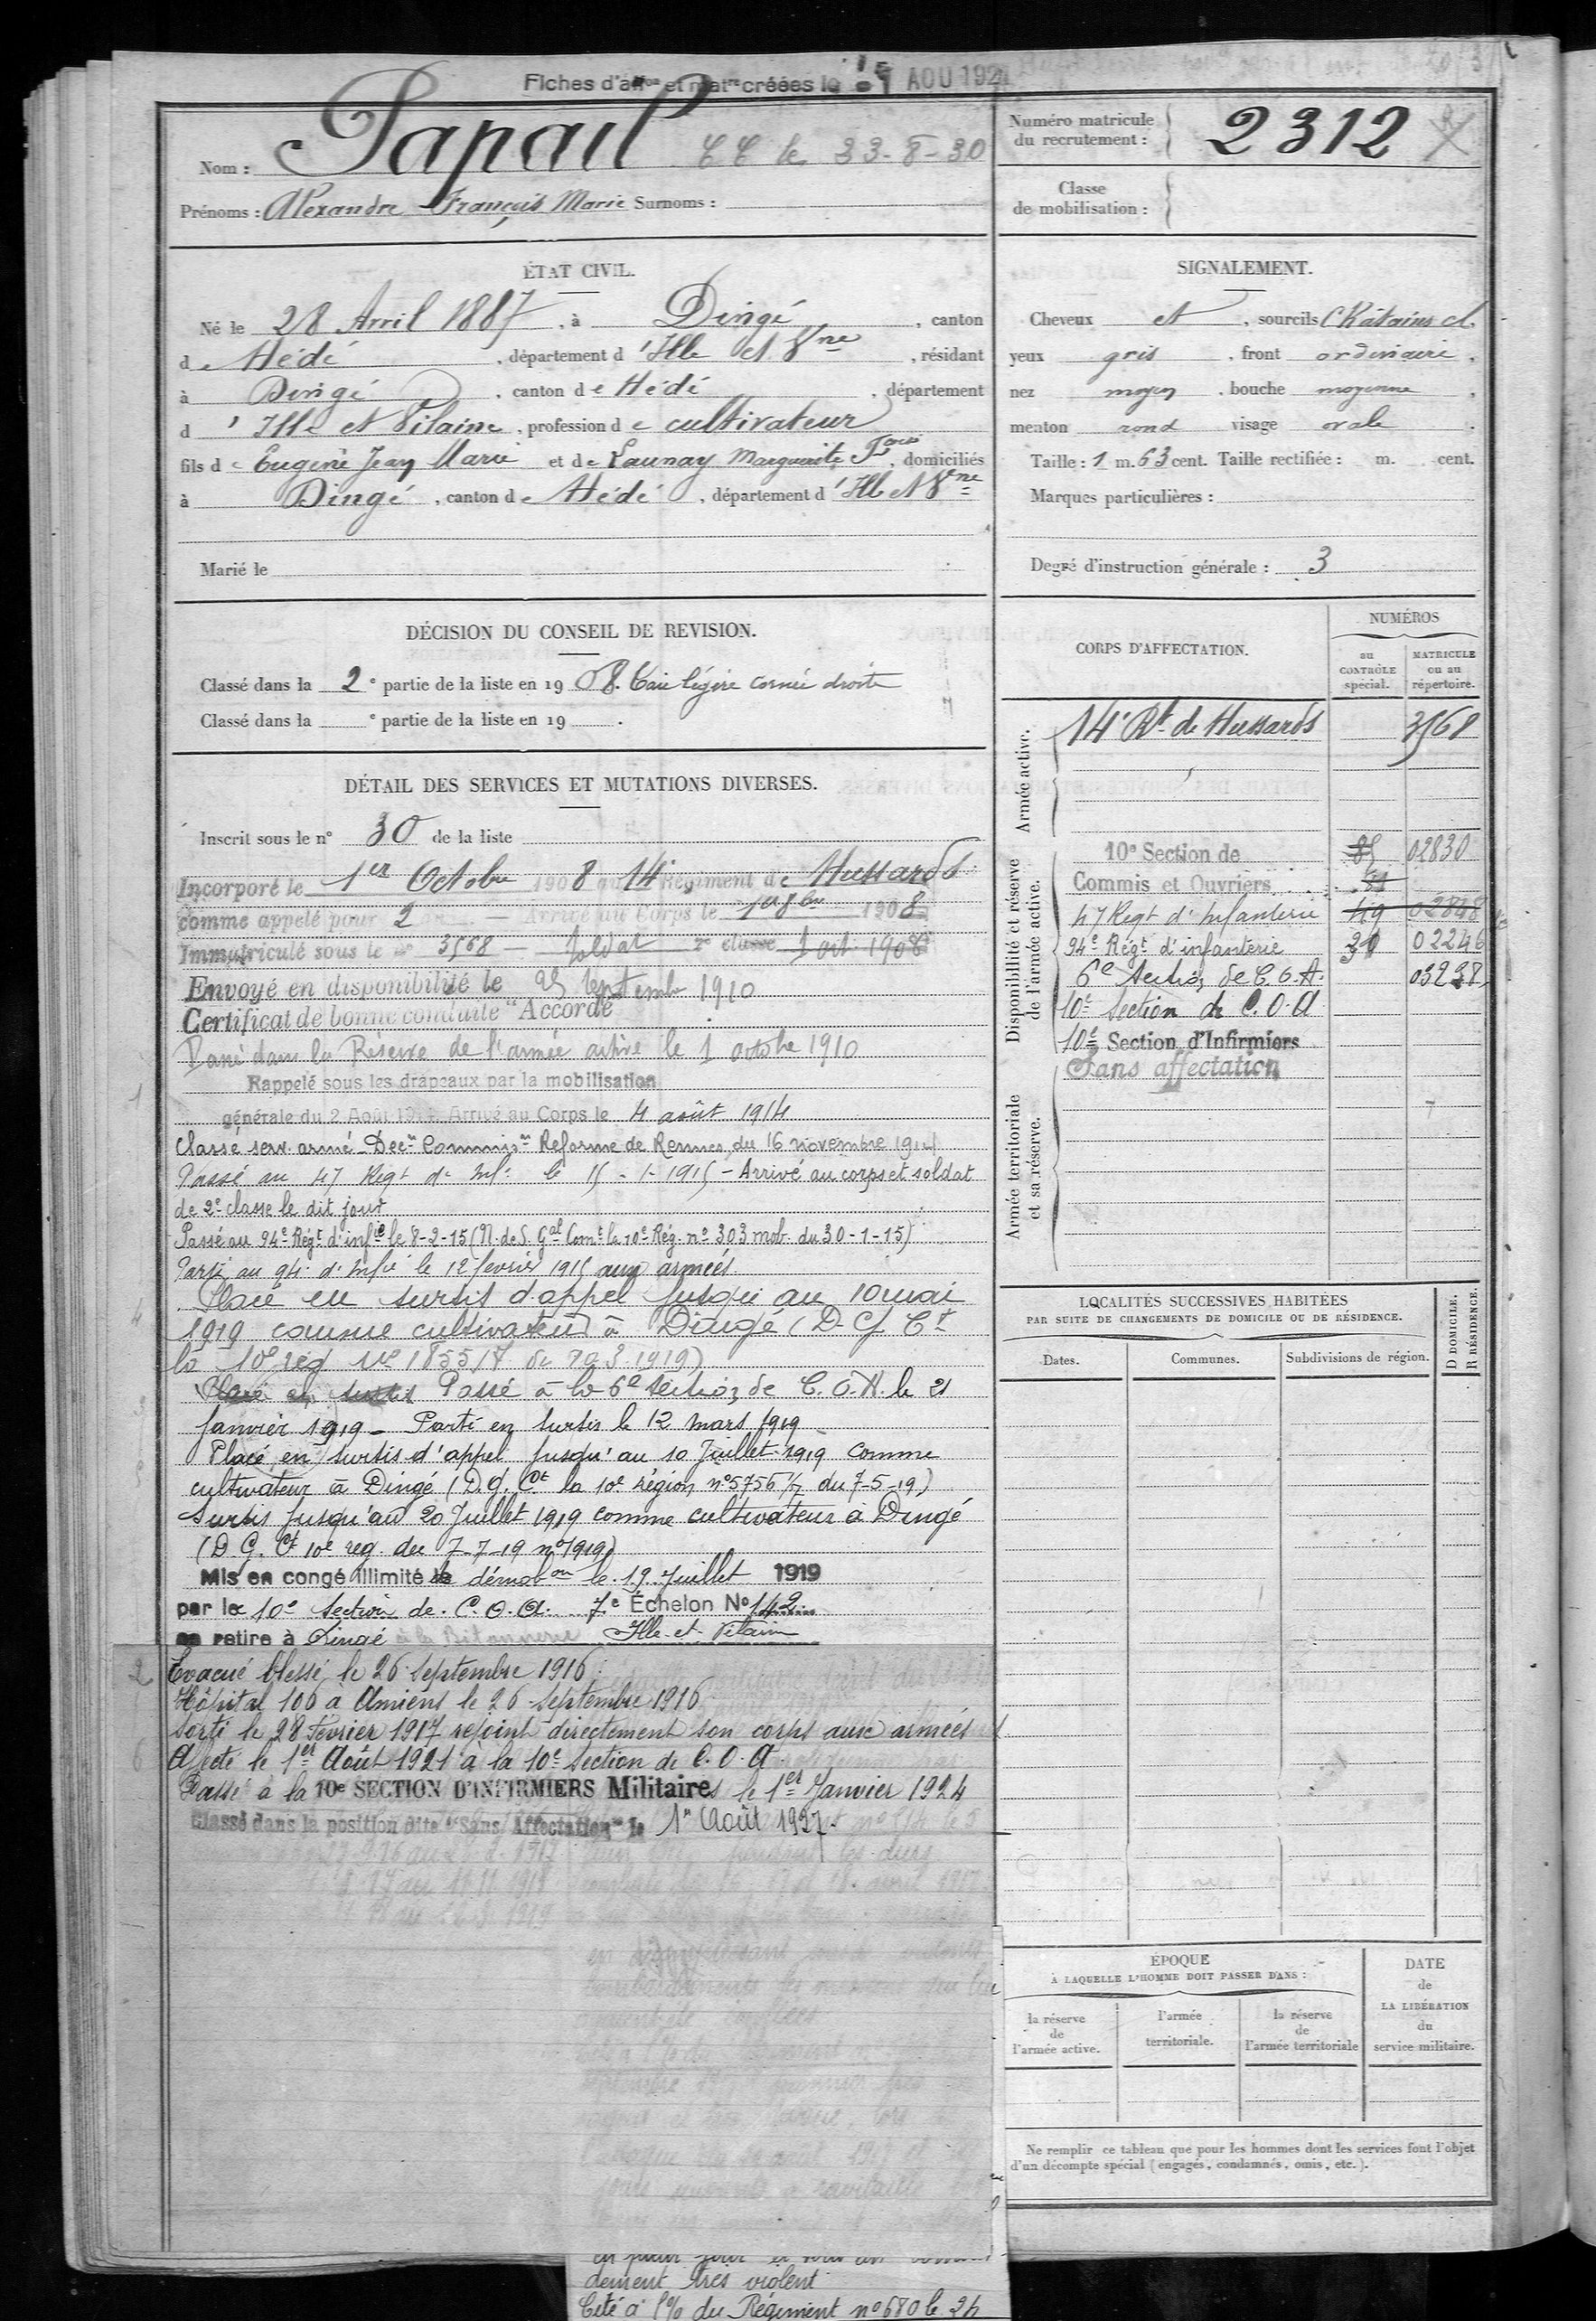 Fiches d'aff<sup>on</sup> et mat<sup>re</sup> créées le AOU 192
Nom : Papail CC le 33-8-30
Prénoms : Alexandre François Marie Surnoms :
Numéro matricule
du recrutement : 2312
Classe
de mobilisation :
ÉTAT CIVIL.
Né le 28 Avril 1887, à Dingé, canton
de Hédé, département d'Ille et Vne, résidant
à Dingé, canton de Hédé, département
d'Ille et Vilaine, profession de cultivateur
fils de Eugène Jean Marie et de Launay Marguerite Fçoise, domiciliés
à Dingé, canton de Hédé, département d'Ille et Vne
Marié le
SIGNALEMENT.
Cheveux et, sourcils Châtains cl.
yeux gris, front ordinaire,
nez moyen, bouche moyenne,
menton rond visage ovale.
Taille : 1 m. 63 cent. Taille rectifiée : m. cent.
Marques particulières :
Degré d'instruction générale : 3
DÉCISION DU CONSEIL DE REVISION.
Classé dans la 2e partie de la liste en 1908. Taie légère cornée droite
Classé dans la e partie de la liste en 19 .
DÉTAIL DES SERVICES ET MUTATIONS DIVERSES.
Inscrit sous le n° 30 de la liste
Incorporé le 1er Octobre 1908 au 14e Régiment de Hussards
comme appelé pour 2 ans — Arrivé au Corps le 1er 8bre 1908
Immatriculé sous le n° 3568 — Soldat 2e classe 1 oct. 1908
Envoyé en disponibilité le 25 Septembre 1910
Certificat de bonne conduite "Accordé"
Passé dans la Réserve de l'armée active le 1 octobre 1910
Rappelé sous les drapeaux par la mobilisation
générale du 2 Août 1914. Arrivé au Corps le 4 août 1914
Classé serv. armé Decn Commisn Reforme de Rennes du 16 novembre 1914
Passé au 47 Regt d' Infie le 15-1-1915 - Arrivé au corps et soldat
de 2e classe le dit jour
Passé au 94e Régt d'infie le 8-2-15 (N. de S. Gal Comt la 10e Rég. n° 303 mob. du 30-1-15)
Parti au 94e d'Infie le 12 février 1915 aux armées
Placé en sursis d'appel jusqu'au 10 mai
1919 comme cultivateur à Dingé (D. G. Ct
la 10e rég N° 18551/7 du 3 1919)
Placé en sursis Passé à la 6e Section de C. O. A. le 21
Janvier 1919 - Parti en sursis le 12 mars 1919
Placé en sursis d'appel jusqu'au 10 Juillet 1919 comme
cultivateur à Dingé (D. G. Ct la 10e région n° 5756 1/7 du 7-5-19)
Sursis jusqu'au 20 Juillet 1919 comme cultivateur à Dingé
(D. G. Ct 10e reg. du 7-7-19 n° 1919)
Mis en congé illimité de démobon le 19 Juillet 1919
par la 10e Section de C. O. A. 7e Échelon N° 142
se retire à Dingé à la Bitannerie Ille-et-Vilaine
Evacué blessé le 26 Septembre 1916
Hôpital 106 à Amiens le 26 Septembre 1916
sorti le 28 Février 1917 rejoint directement son corps aux armées
Affecté le 1er Août 1921 à la 10e Section de C. O. A.
Passé à la 10e SECTION D'INFIRMIERS Militaires le 1er Janvier 1924
Classé dans la position dite "Sans Affectation" le 1er Août 1927.
dement très violent
Cité à l'O/ du Régiment n° 680 le 24
CORPS D'AFFECTATION.
NUMÉROS
au
CONTROLE
spécial.
MATRICULE
ou au
répertoire.
Armée active.
14e Rt de Hussards 3568
Disponibilité et réserve
de l'armée active.
10e Section de 85 02830
Commis et Ouvriers
47 Regt d'Infanterie 49 02848
94e Régt d'infanterie 30 02246
6e Section de C. O. A. 03238
10e Section de C. O. A
10e Section d'Infirmiers
Sans affectation
Armée territoriale
et sa réserve.
LOCALITÉS SUCCESSIVES HABITÉES
PAR SUITE DE CHANGEMENTS DE DOMICILE OU DE RÉSIDENCE.
D DOMICILE.
R RÉSIDENCE.
Dates. Communes. Subdivisions de région.
ÉPOQUE
À LAQUELLE L'HOMME DOIT PASSER DANS :
la réserve
de
l'armée active.
l'armée
territoriale.
la réserve
de
l'armée territoriale
DATE
de
LA LIBÉRATION
du
service militaire.
Ne remplir ce tableau que pour les hommes dont les services font l'objet
d'un décompte spécial (engagés, condamnés, omis, etc.).